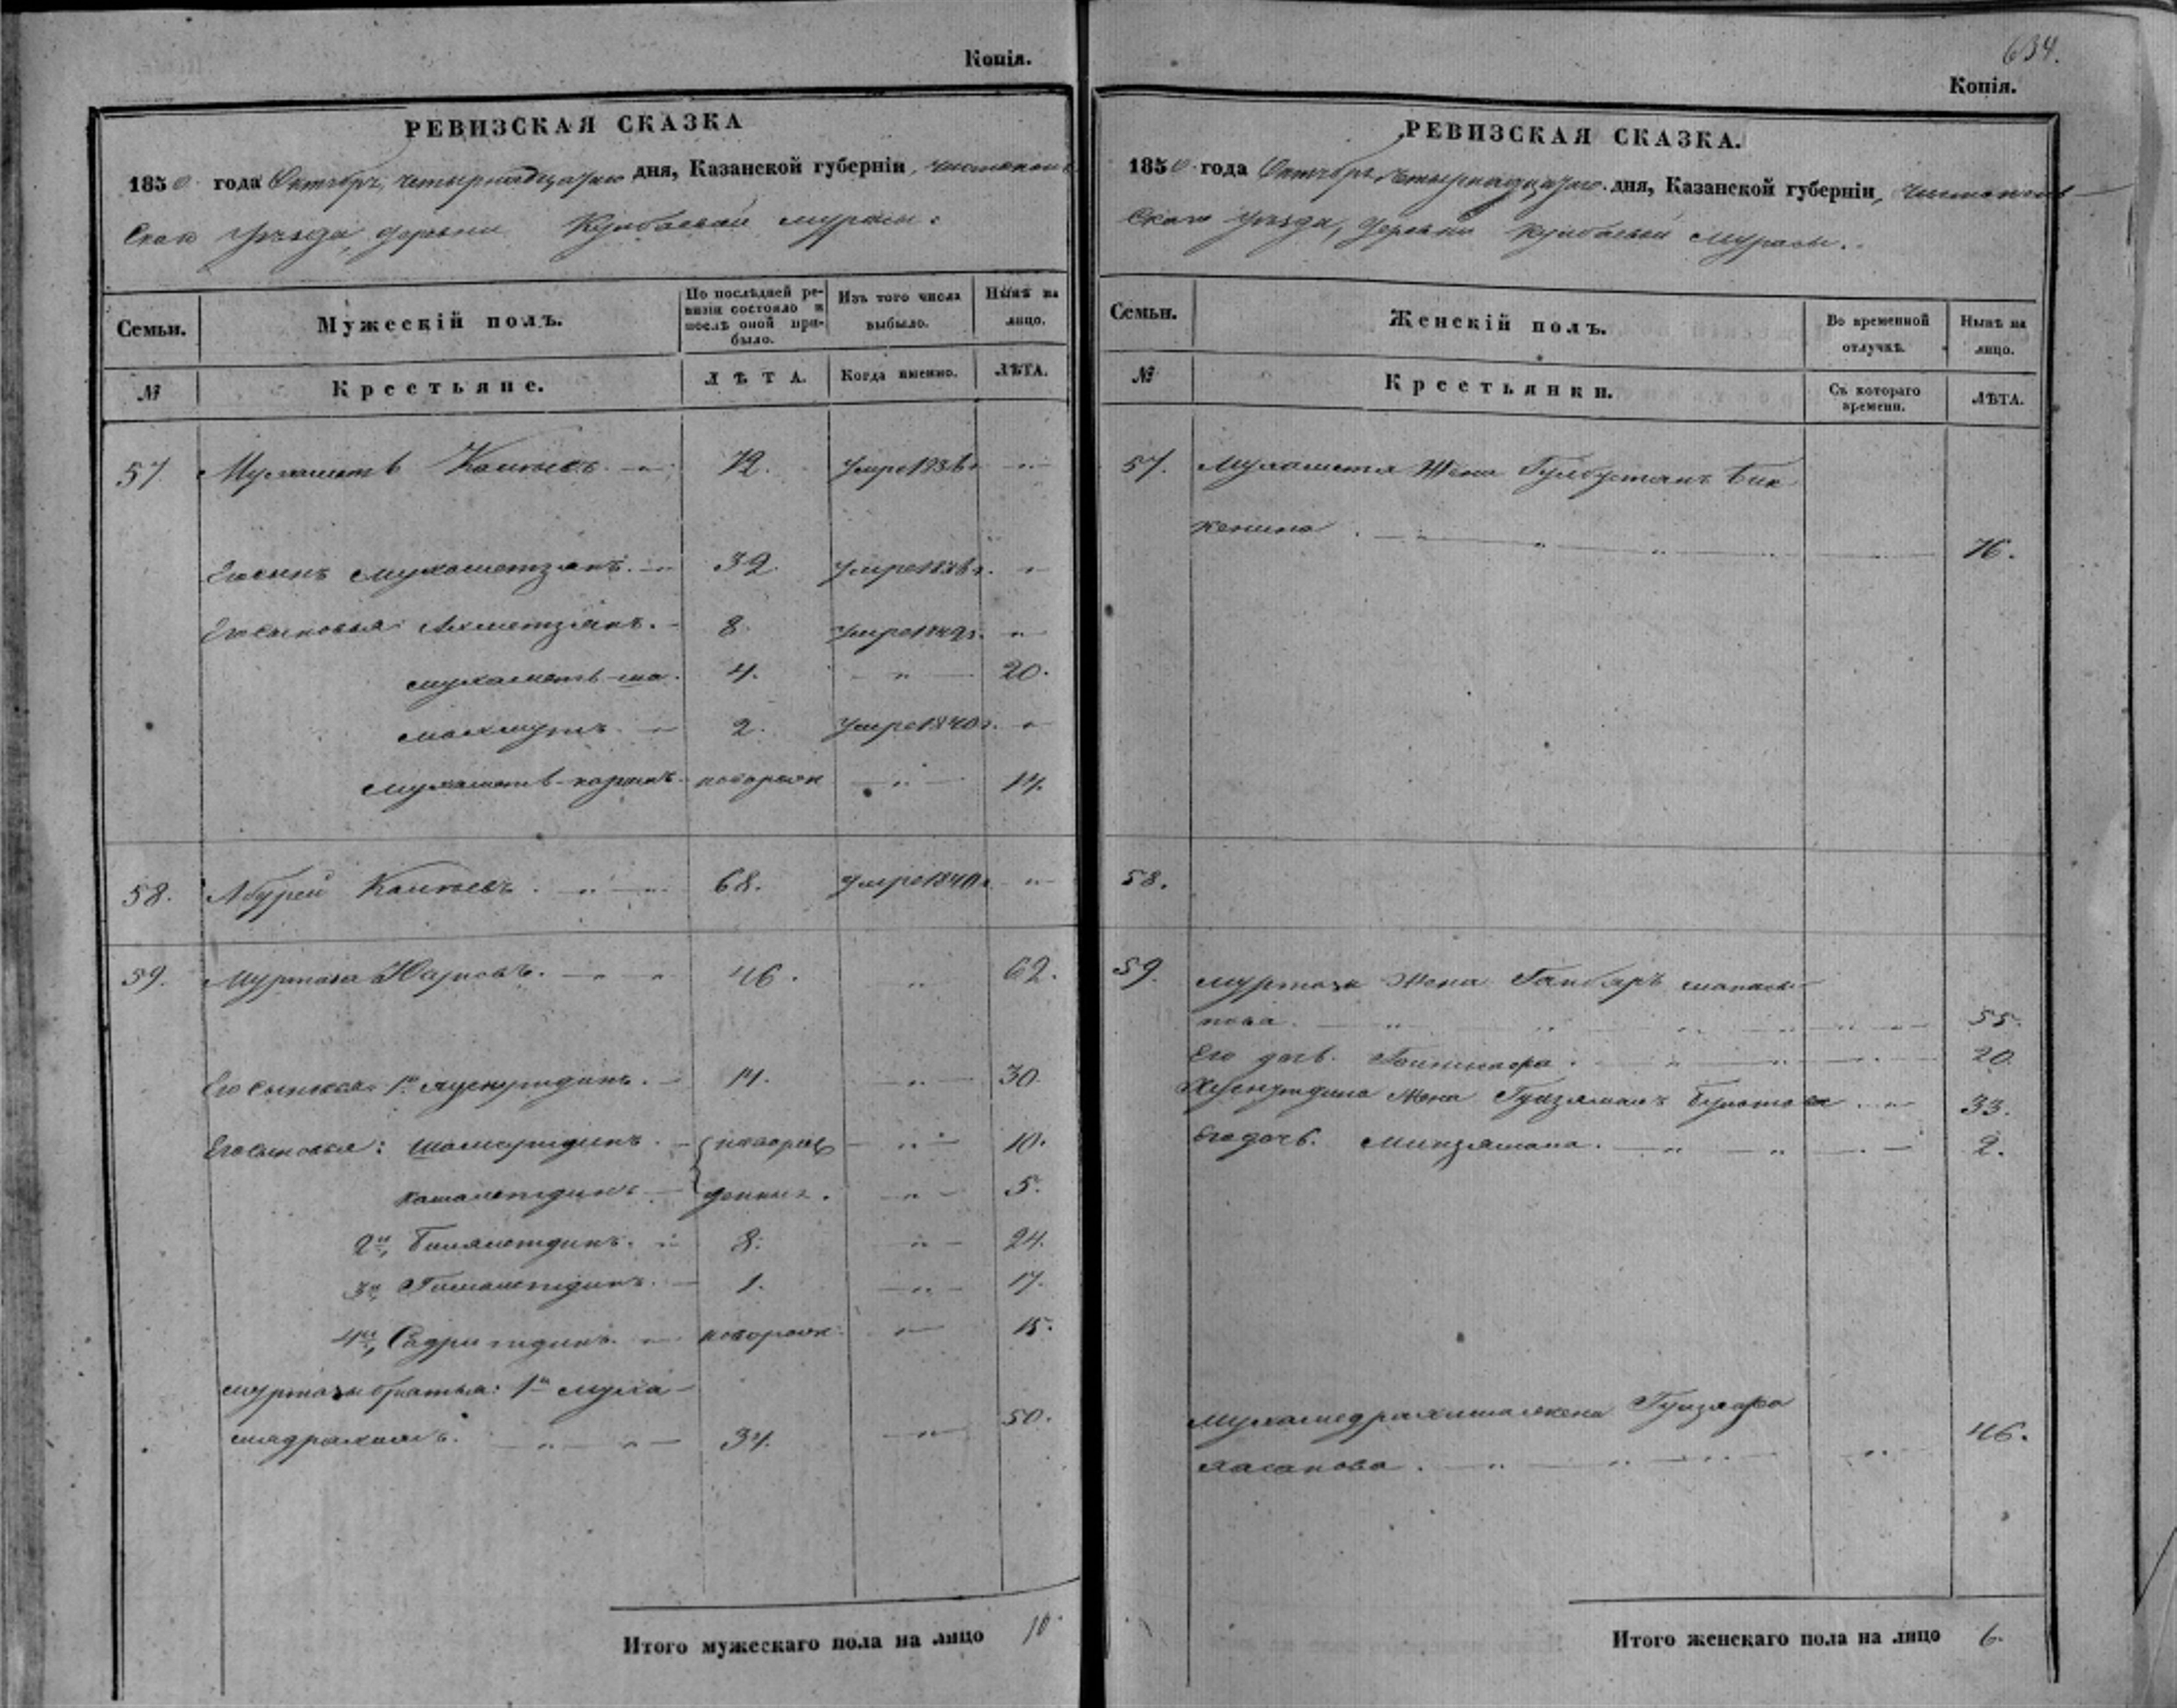 Копія.
РЕВИЗСКАЯ СКАЗКА
1850 года Октября четырнадцатаго дня, Казанской губерніи, Чистополь
скаго уѣзда, деревни Кутбаевой мурасы.
Семьи.
Мужескій полъ.
По послѣдней ре-
визіи состояло и
послѣ оной при-
было.
Изъ того числа
выбыло.
Нынѣ на
лицо.
№
Крестьяне.
ЛѢТА.
Когда именно.
ЛѢТА.
57 Мухаметь 72.
Его сынъ Мухаметзянъ. 32 умре
Его сыновья: Ахметзянъ. 8. умре 1842 г.
Мухаметь-ша. 4. 20.
Махмутъ. 2. умре 1840 г.
Мухаметь-каримъ новорожд 14.
58. 68. умре 1840 г.
59. Муртаза 46. 62.
Его сыновья: 1й Хуснутдинъ. 14. 30.
Его сыновья: Шамсутдинъ. новорож 10.
Камалетдинъ денных. 5.
2й, 8. 24.
3й, 1. 17.
4й, Садритдинъ. новорожд. 15.
Муртазы братья: 1й Муха-
мадрахимъ. 34. 50.
Итого мужескаго пола на лицо 10
634.
Копія.
РЕВИЗСКАЯ СКАЗКА.
1850 года Октября четырнадцатаго дня, Казанской губерніи, Чистополь
скаго уѣзда, деревни Кутбаевой мурасы.
Семьи.
Женскій полъ.
Во временной
отлучкѣ.
Нынѣ на
лицо.
№
Крестьянки.
Съ котораго
времени.
ЛѢТА.
57. Мухаметя жена Гулбустанъ Бик
кенина. 76.
58.
59. Муртазы жена
нова. 55.
Его дочь. 20.
Хуснутдина жена Гулзяманъ Булатова 33.
Его дочь. Минзямана. 2.
Мухамедрахима жена
Хасанова. 46.
Итого женскаго пола на лицо 6.